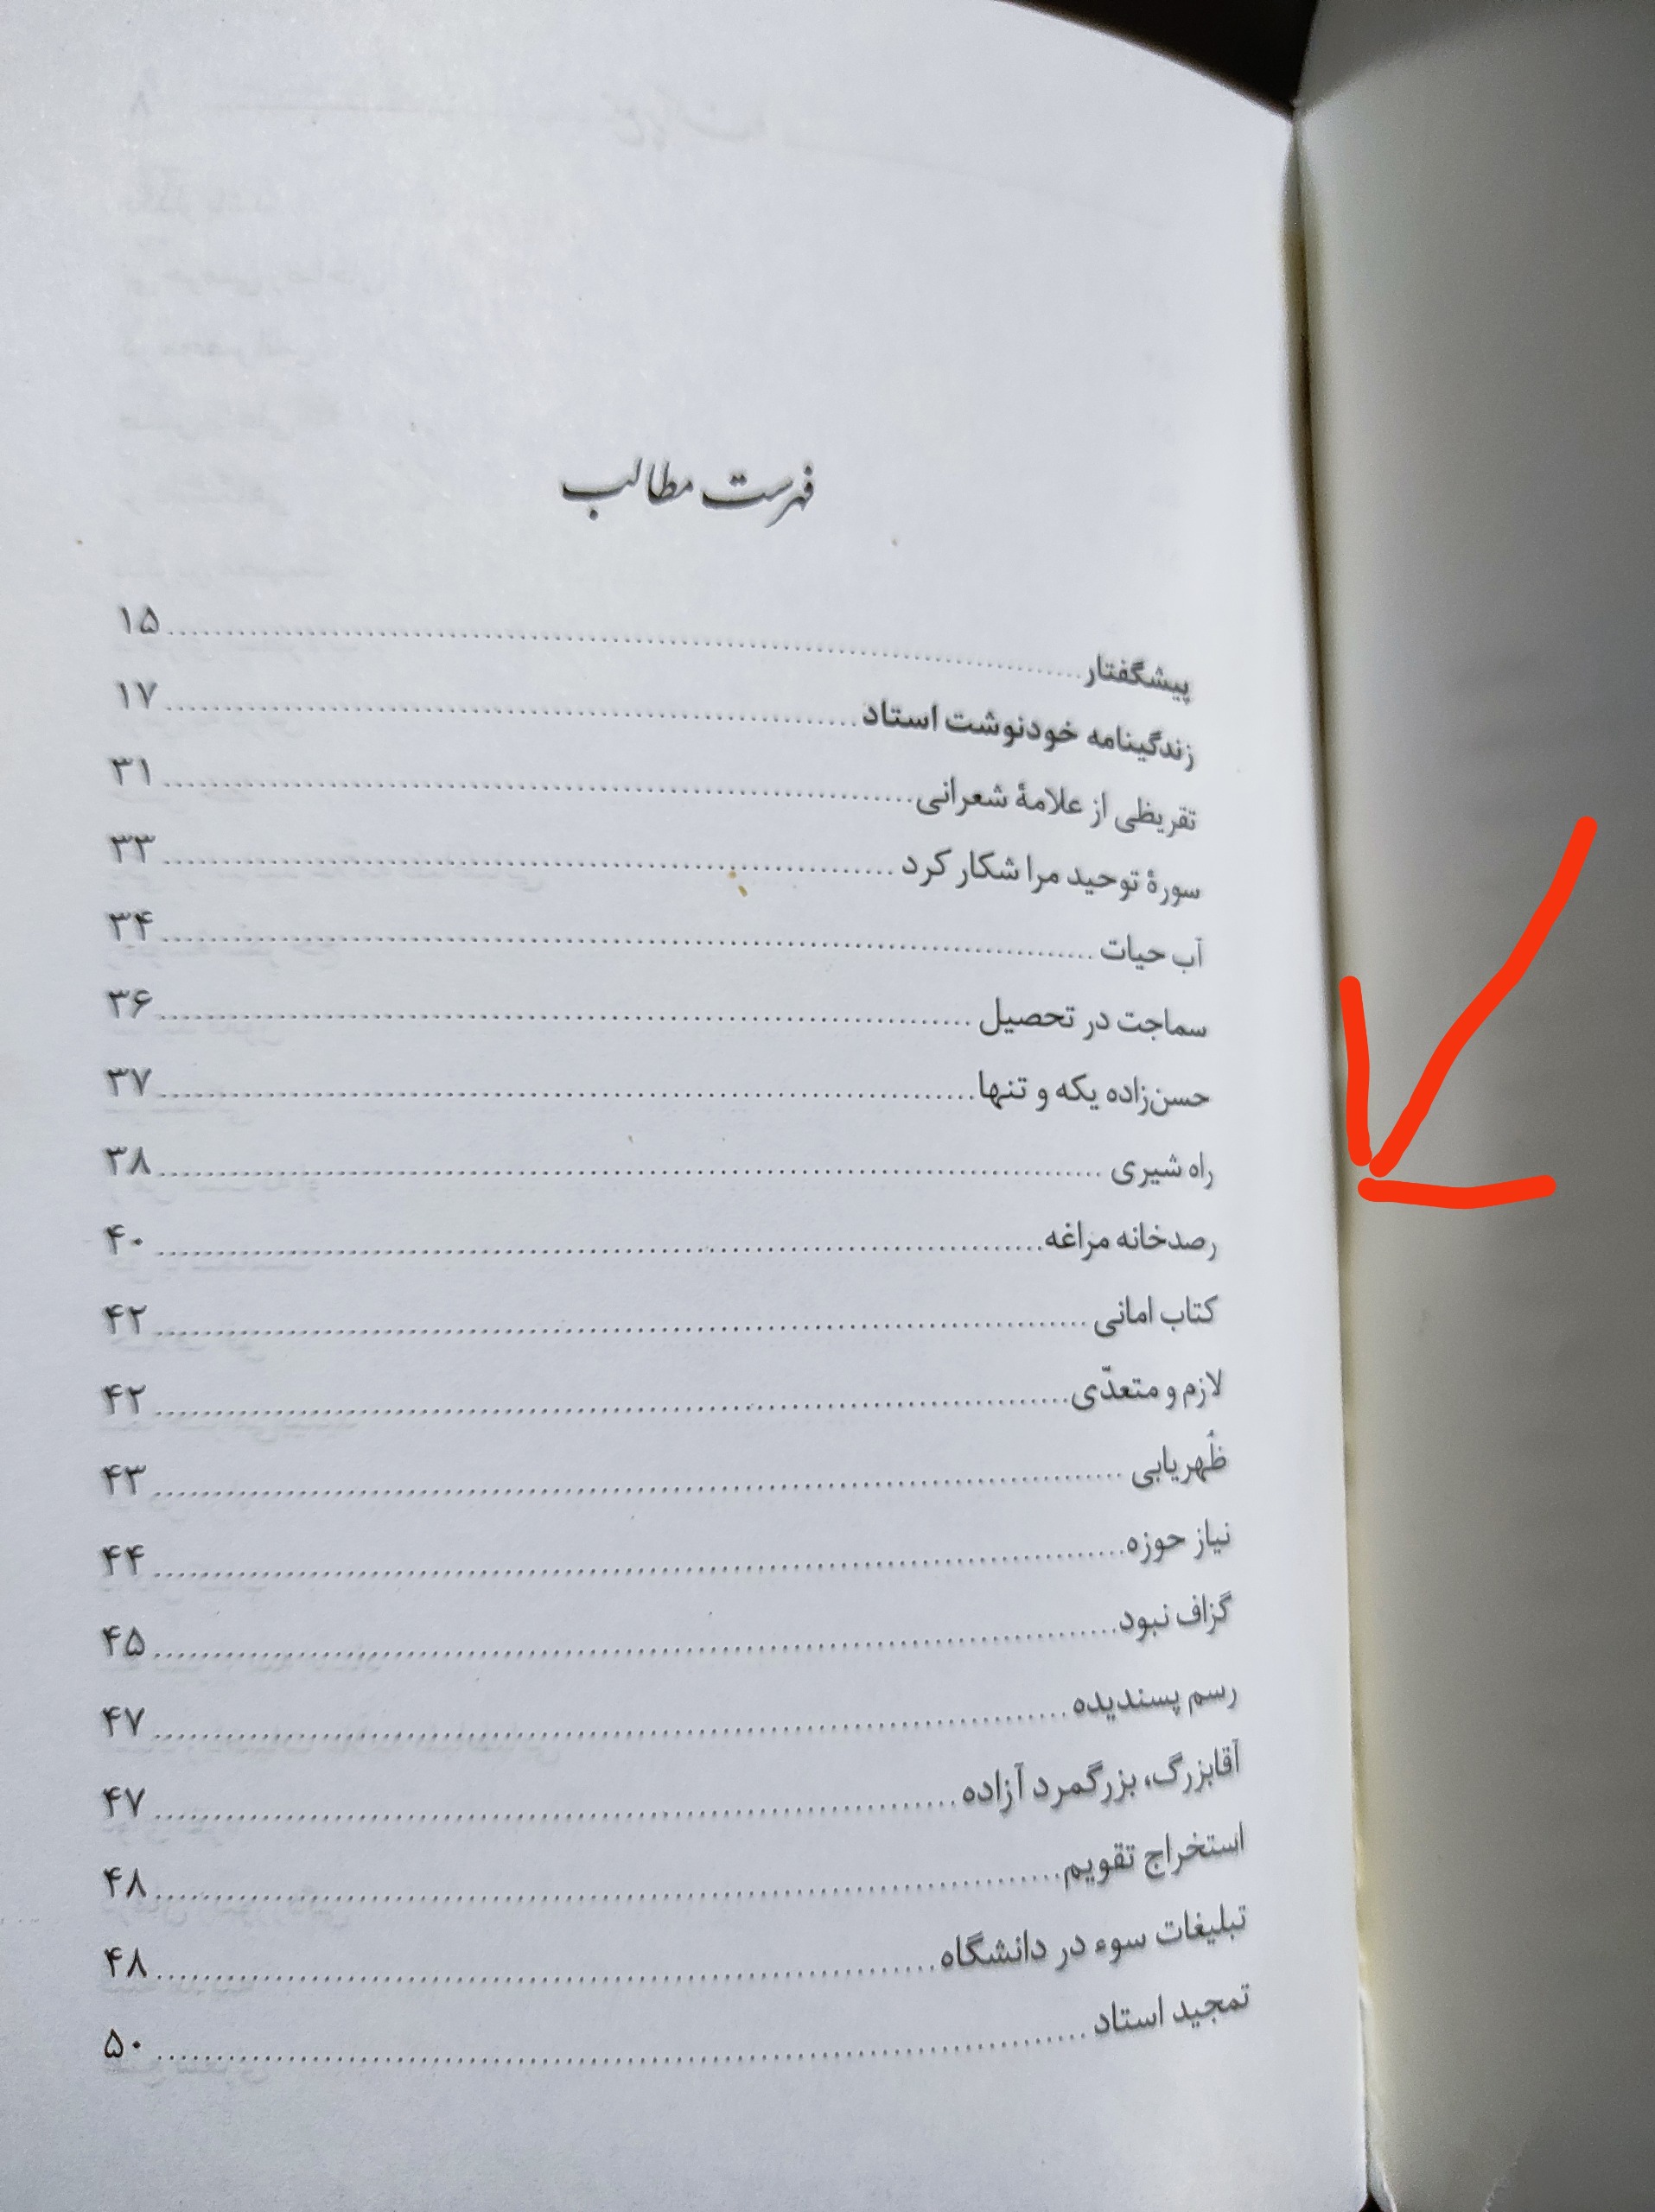 فهرست مطالب
پیشگفتار ۱۵
زندگینامه خودنوشت استاد ۱۷
تقریظی از علامۀ شعرانی ۳۱
سورۀ توحید مرا شکار کرد ۳۳
آب حیات ۳۴
سماجت در تحصیل ۳۶
حسن‌زاده یکه و تنها ۳۷
راه شیری ۳۸
رصدخانه مراغه ۴۰
کتاب امانی ۴۲
لازم و متعدّی ۴۲
ظُهریابی ۴۳
نیاز حوزه ۴۴
گزاف نبود ۴۵
رسم پسندیده ۴۷
آقابزرگ، بزرگمرد آزاده ۴۷
استخراج تقویم ۴۸
تبلیغات سوء در دانشگاه ۴۸
تمجید استاد ۵۰